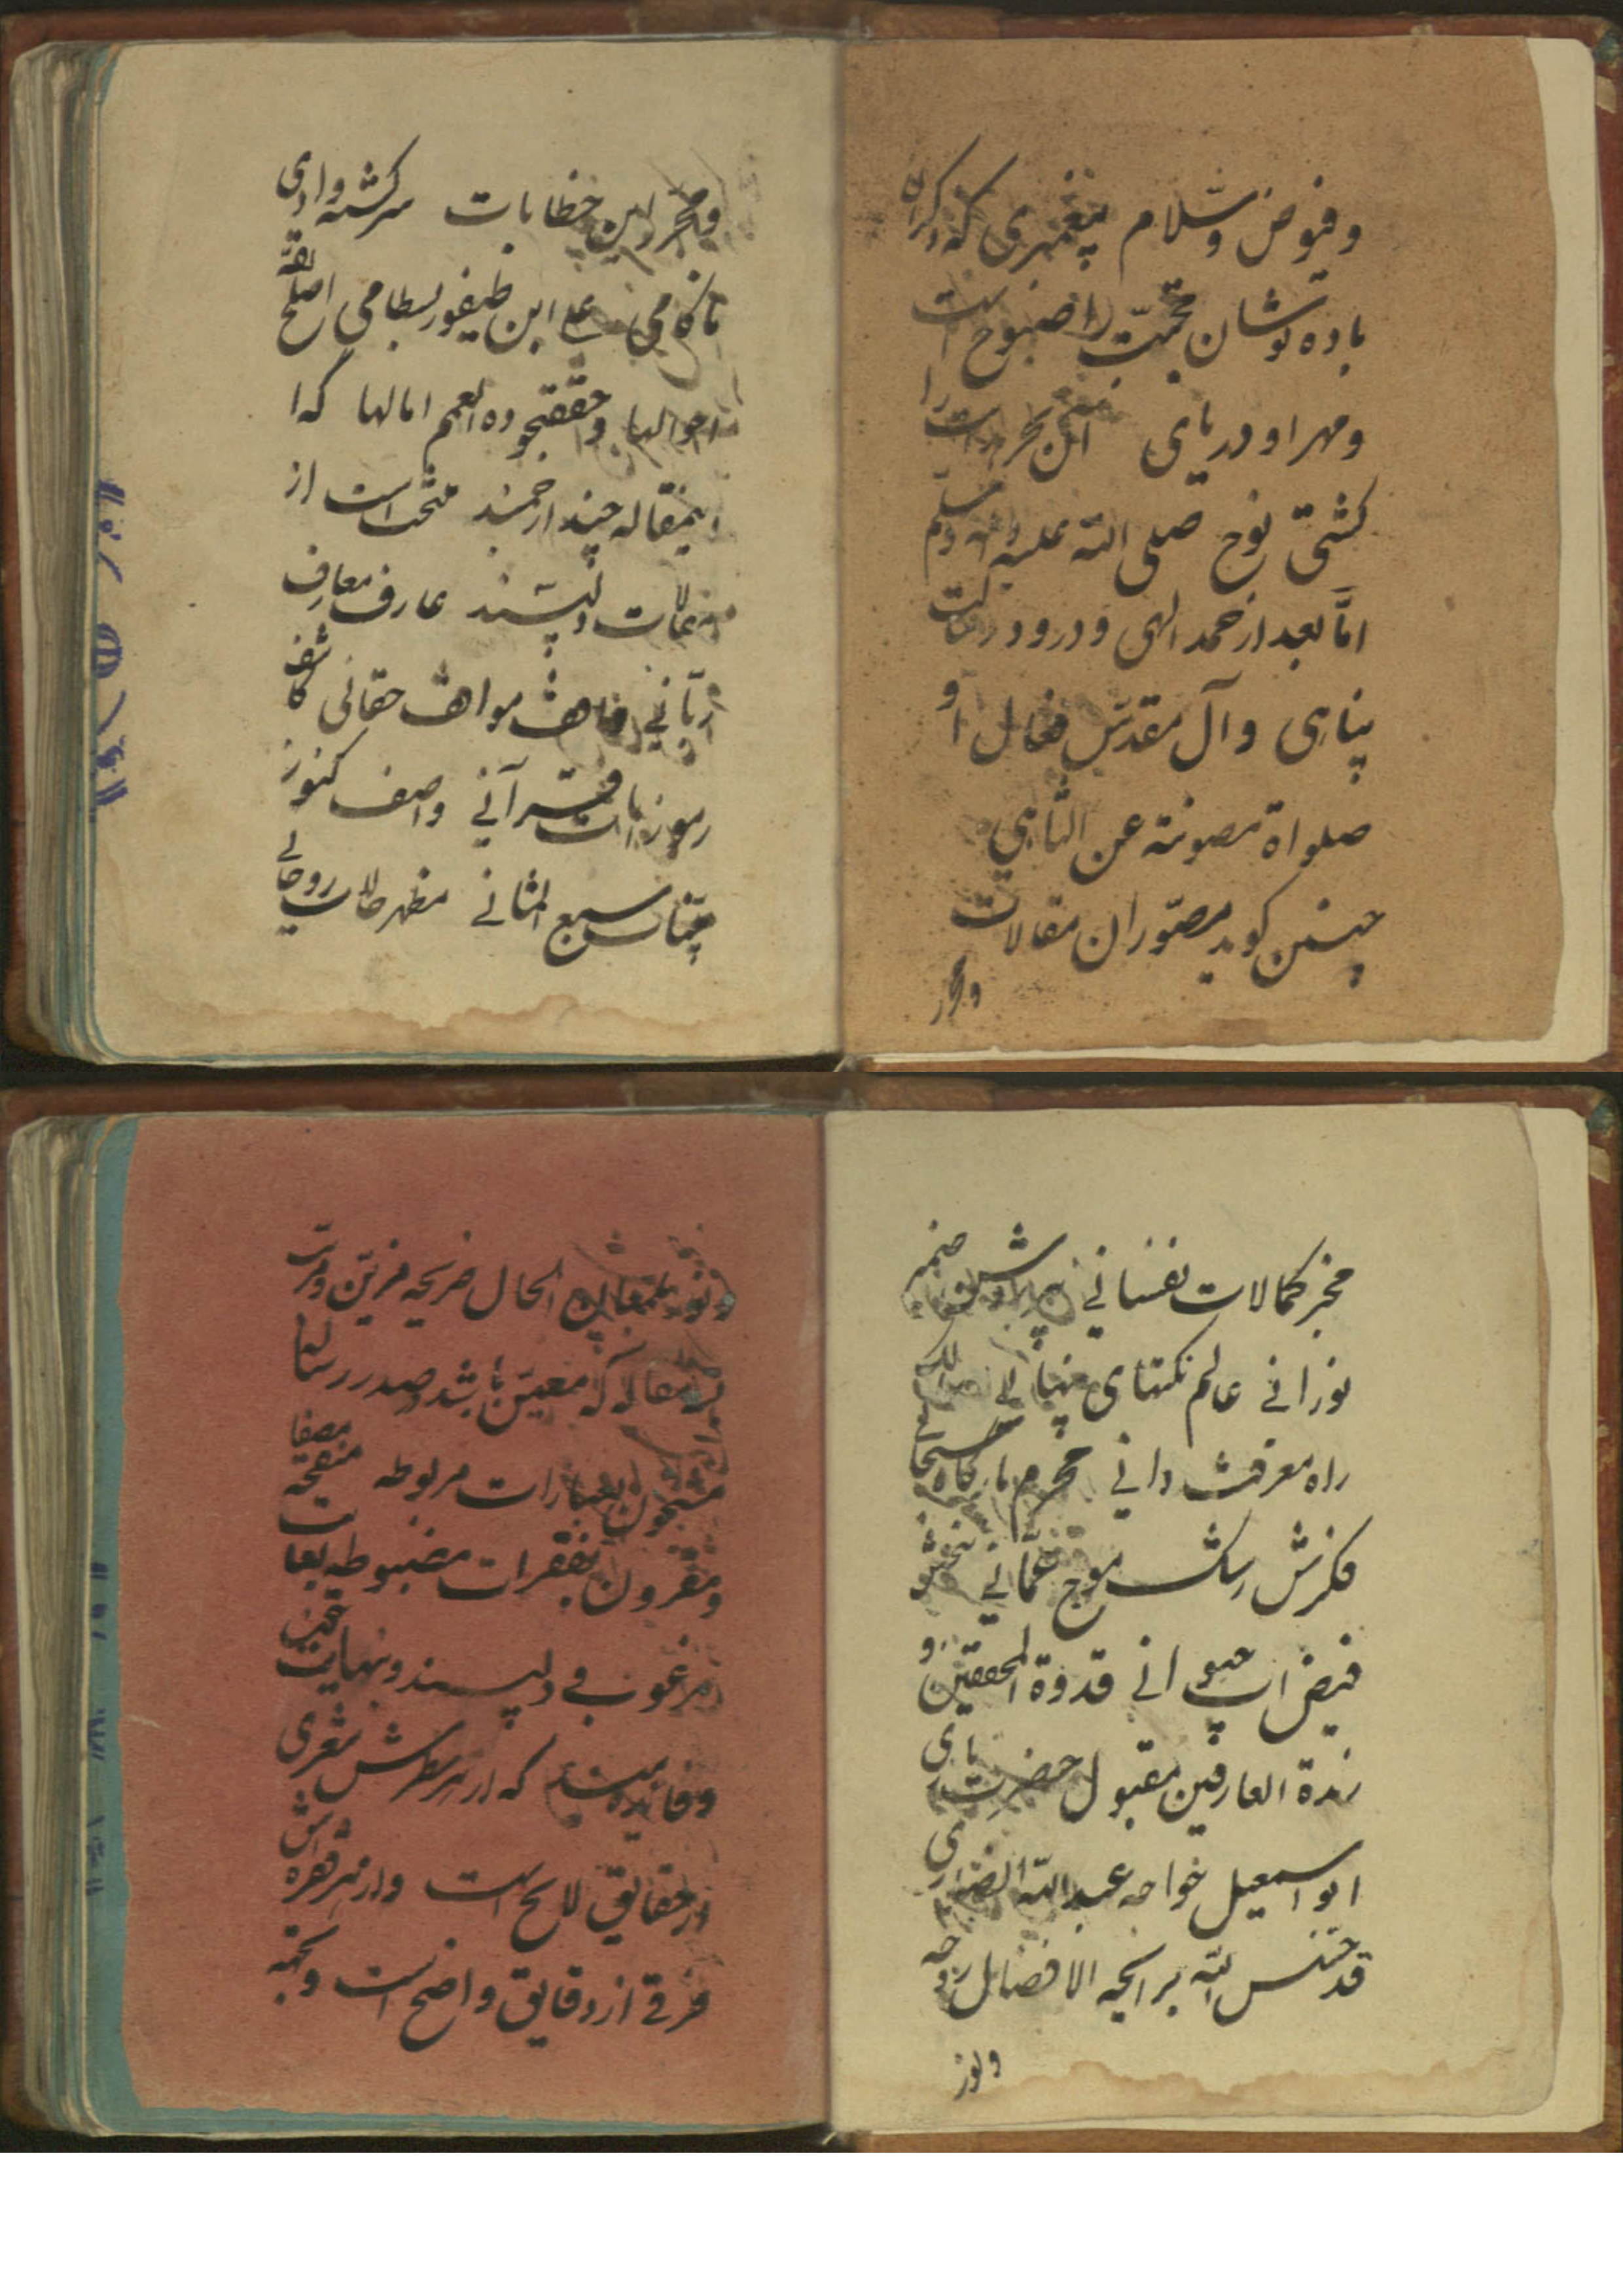 وفیوض وسلام پیغمبری که ذکر او
باده نوشان محبّت را صبوح است
ومهر او دریای این بحر است را
کشتی نوح صلی الله علیه واله وسلم
امّا بعد از حمد الهی و درود رسالت
پناهی و آل مقدّس فعال او
صلواة مصونة عن التناهی
چنین کوید مصوّران مقالات
ومحرر
ومحرر این خطابات سرکشته وادی
ناکامی علی ابن طیفور بسطامی اصلح الله
احوالها وحقق بجوده العمیم امالها که
اینمقاله چند ارجمند منتخب است از
مقالات دلپسند عارف معارف
ربّانی واهب مواهب حقانی کاشف
رموزات قرآنی واصف کنوز
سبع المثانی مظهر حالات روحانی
مخبر کمالات نفسانی ضمیر
نورانی عالم نکتهای نهانی
راه معرفت دانی محرم بارکاه سبحانی
فکرش رشک موج عمّانی
فیض اب حیوانی قدوة المحققین و
زبدة العارفین مقبول حضرت باری
ابو اسمعیل خواجه عبد الله انصاری
قدّس الله برایحه الافضال روحه
ونور
ونور بلمعان الحال ضریحه مزیّن ومرتب
مقاله که معیّن باشد وصدر رسالها
مشحون بعبارات مربوطه منقحه مصفا
ومقرون بفقرات مضبوطه بغایت
مرغوب و دلپسند ونهایت
وفایده مند که از هر سطرش شعری
از حقایق لایح است واز هر فقره اش
فرقی از دقایق واضح است وبجهة